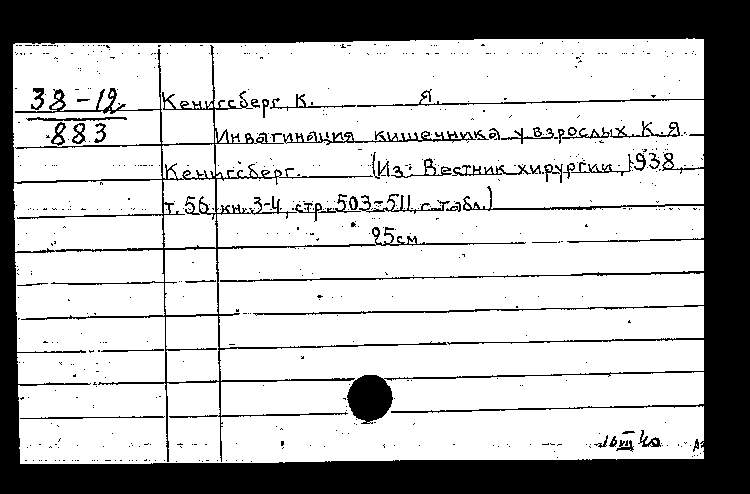 38-12
883
Кенигсберг, К. Я.
Инвагинация кишечника у взрослых К. Я.
Кенигсберг. (Из: Вестник хирургии, 1938,
т. 56, кн. 3-4, стр. 503-511, с табл.)
25см.
16 VIII 40